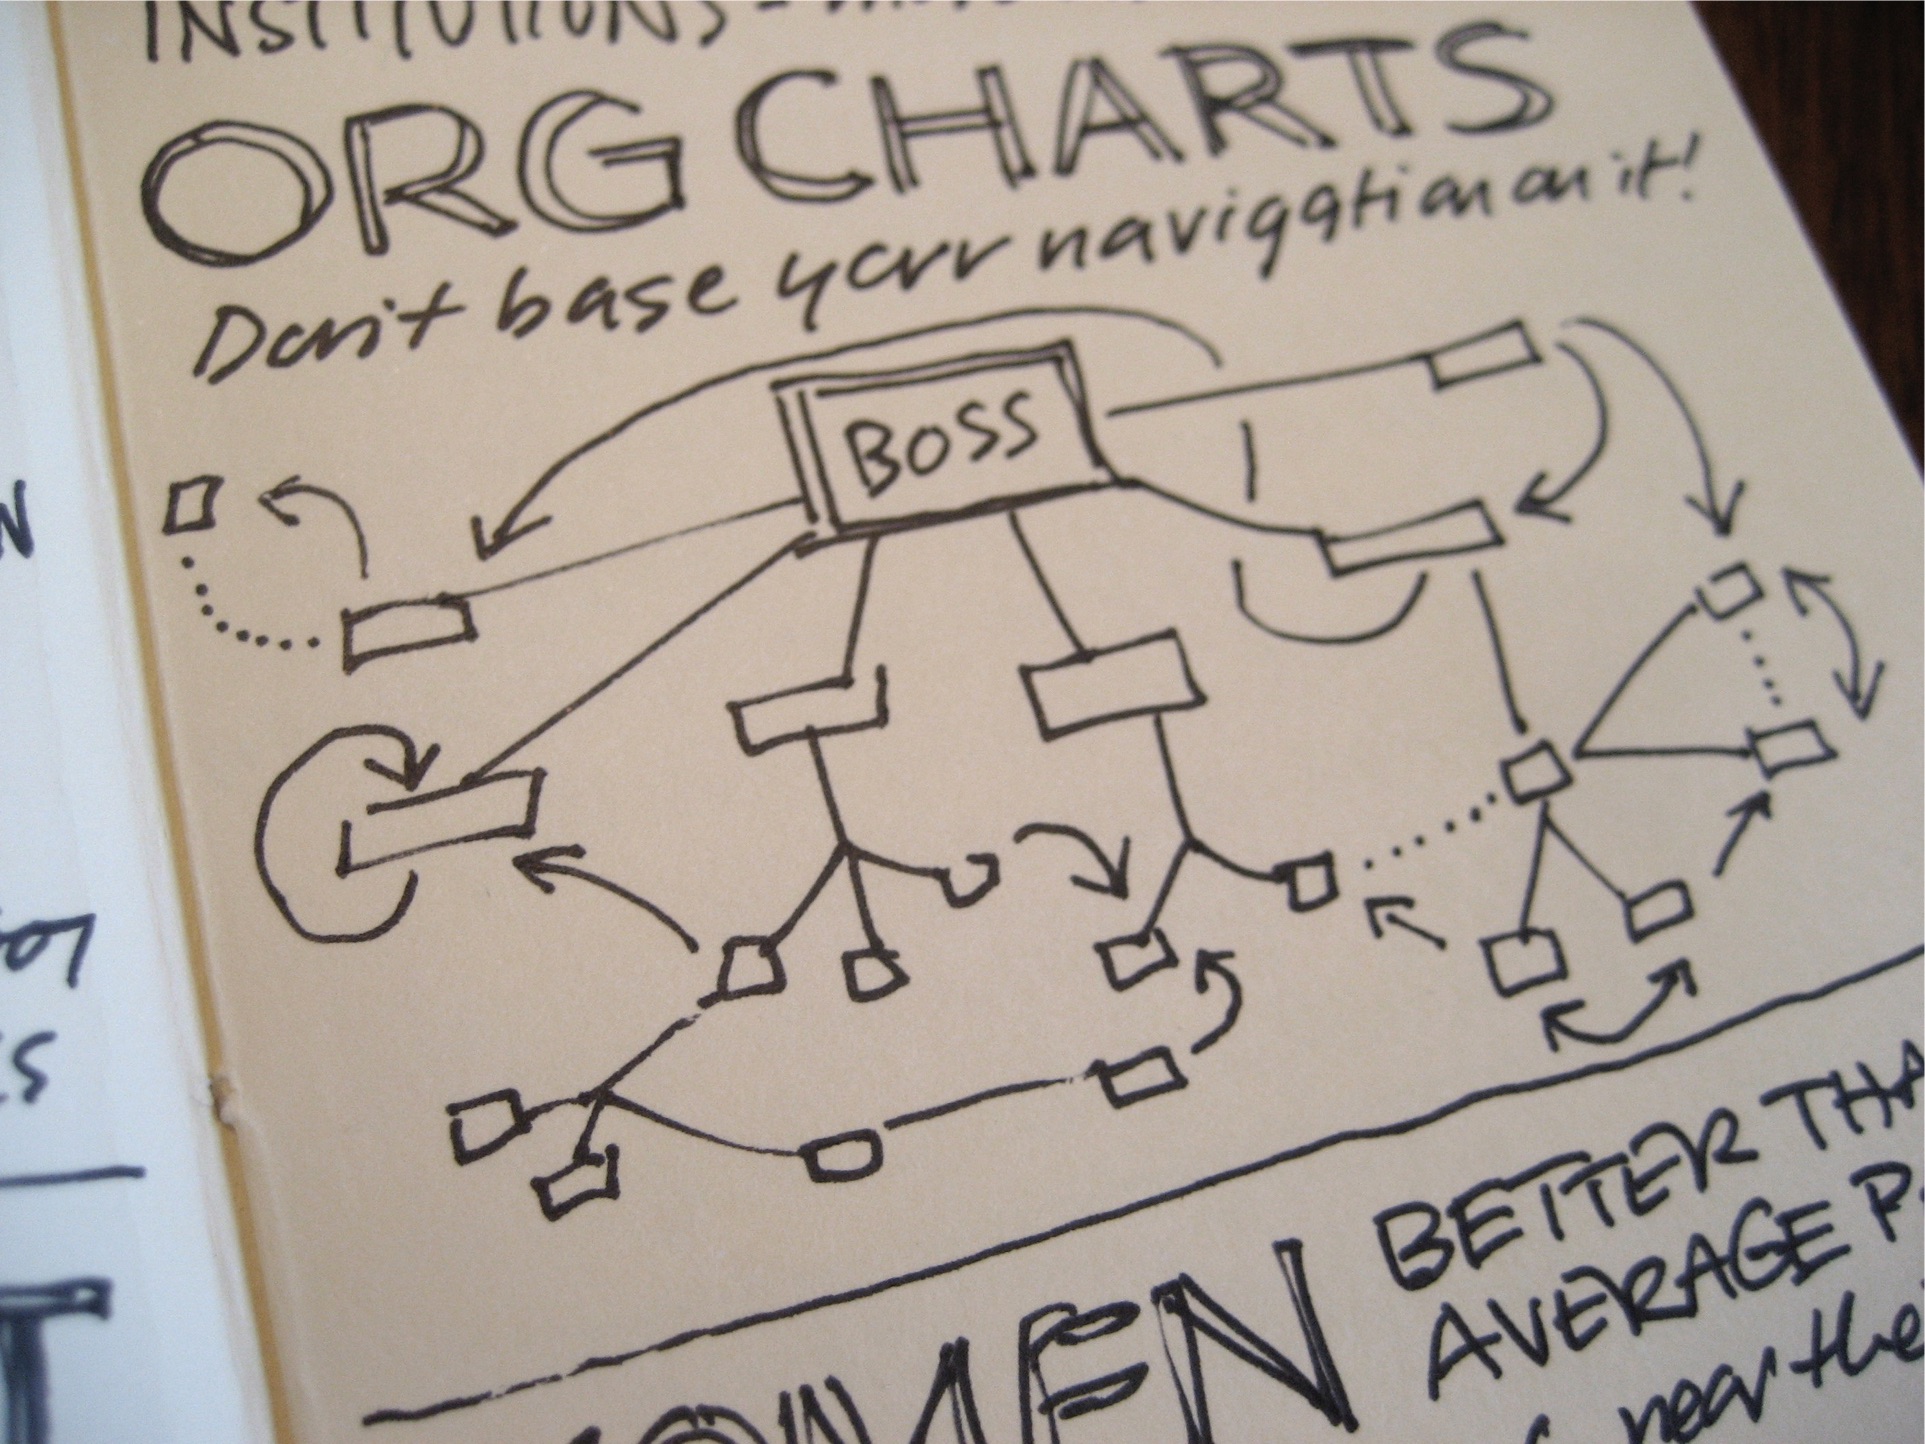 INSTITUTIONS -
ORG CHARTS
Don't base your navigation on it!
BOSS
BETTER THA
AVERAGE P
near the